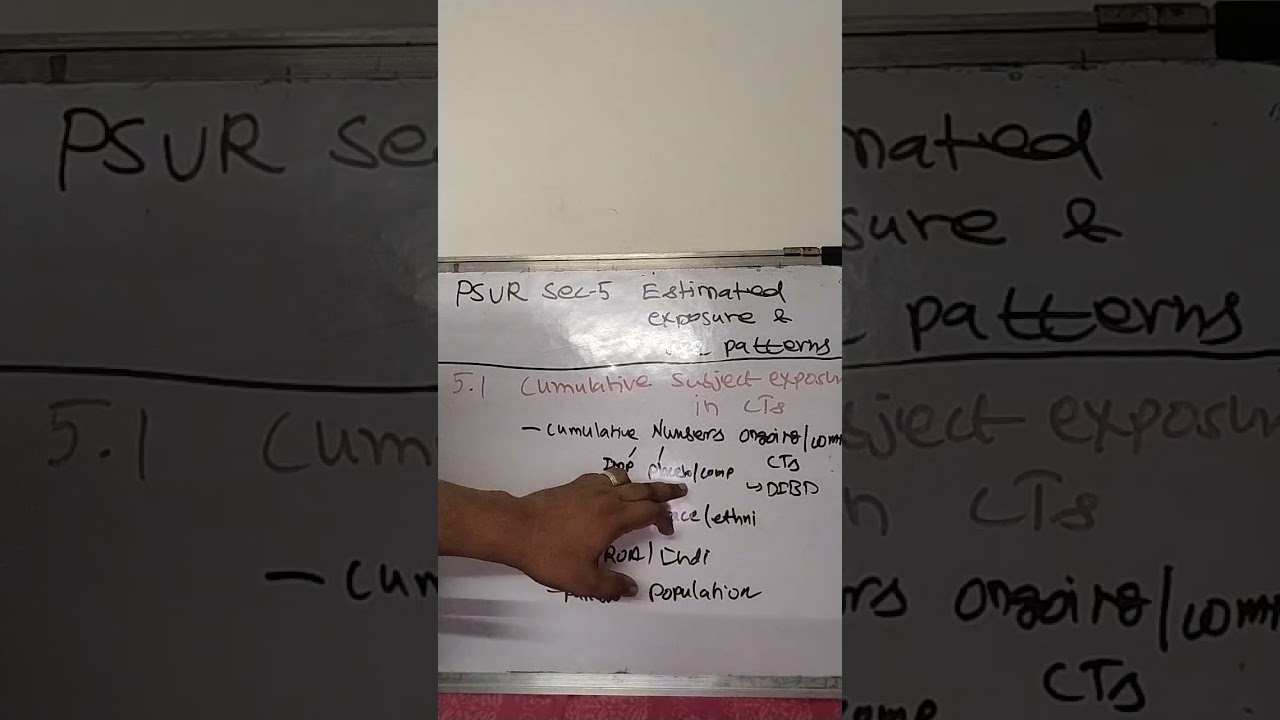 PSUR Sec-5 Estimated
exposure &
patterns
5.1 Cumulative subject exposu
in CTs
- Cumulative Numbers ongoing/com
Imp placebo/comp CTs
↪ DIBD
/ethni
ROA/ Indi
population